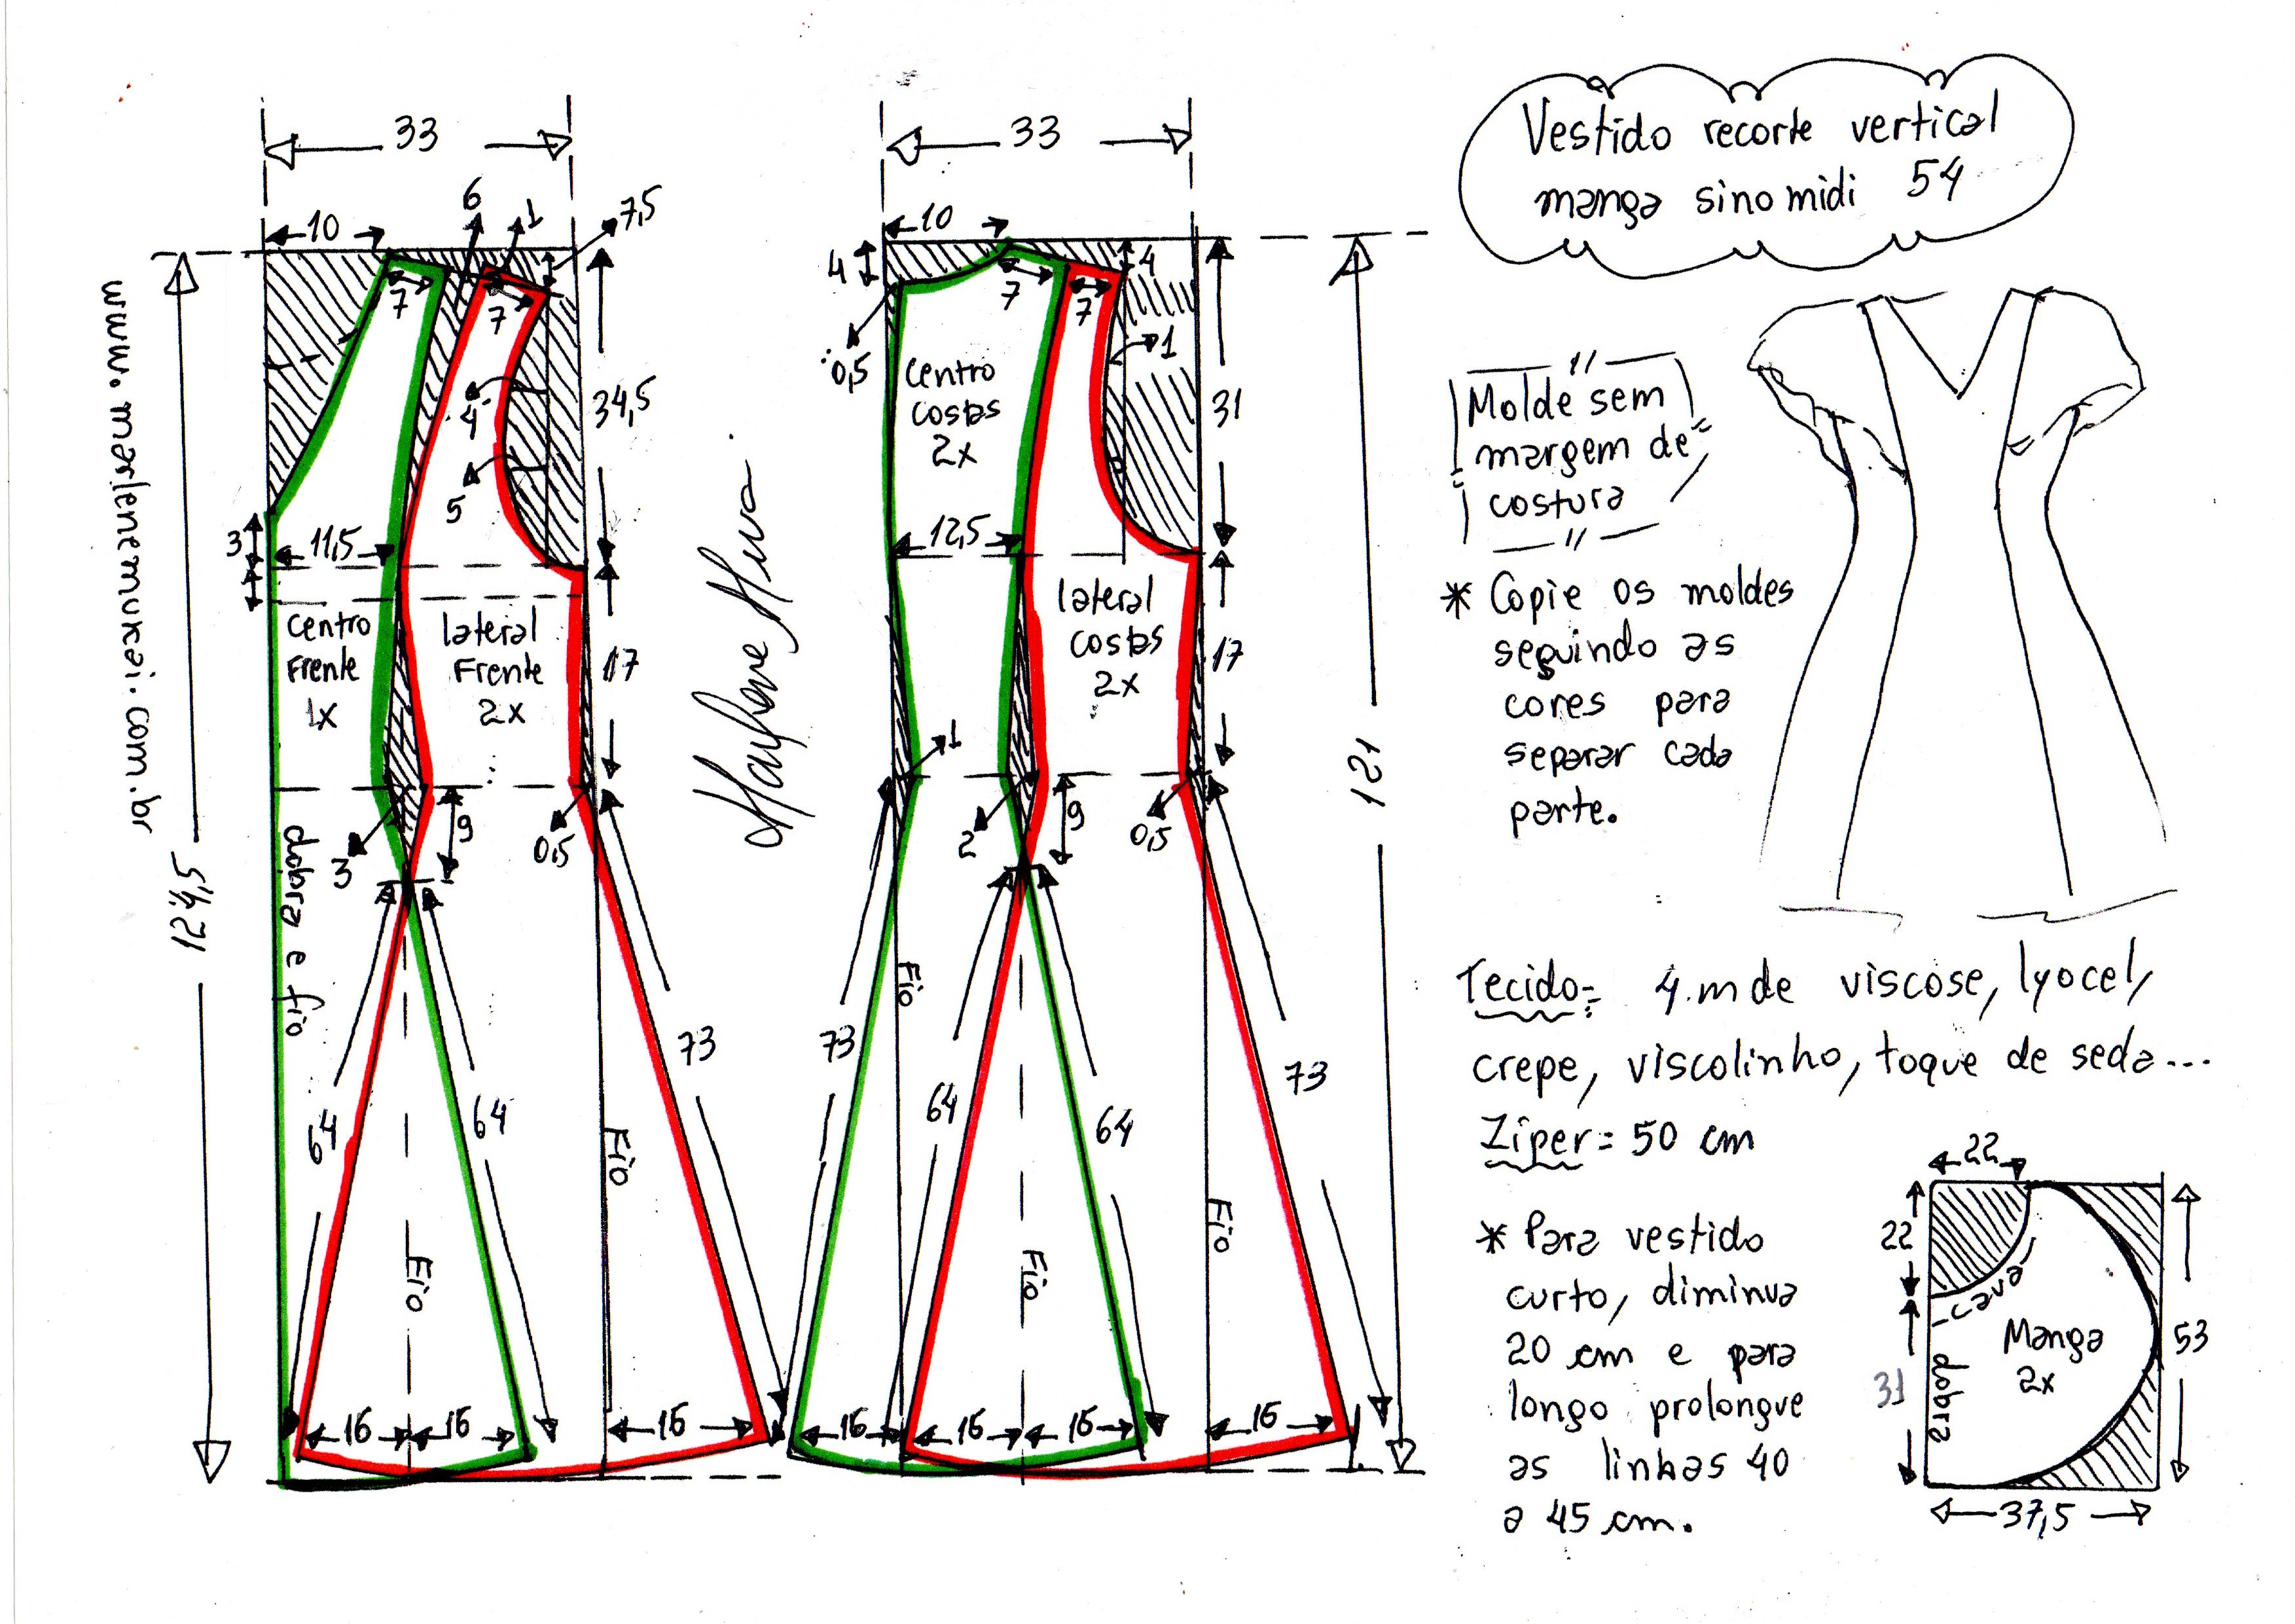 Vestido recorte vertical
manga sino midi 54
www.marlenemukai.com.br
33
10
6
1
7,5
7
7
34,5
4
5
3
11,5
Centro
Frente
1x
lateral
Frente
2x
17
9
3
0,5
dobra e fio
124,5
64
64
73
Fio
Fio
16
16
16
33
10
4
4
7
7
1
0,5
Centro
costas
2x
31
12,5
lateral
costas
2x
17
1
2
9
0,5
121
Fio
73
64
64
73
Fio
Fio
16
16
16
16
Molde sem
margem de
costura
* Copie os moldes
seguindo as
cores para
separar cada
parte.
Tecido= 4.m de viscose, lyocel,
crepe, viscolinho, toque de seda...
Zíper= 50 cm
* Para vestido
curto, diminua
20 cm e para
longo prolongue
as linhas 40
a 45 cm.
22
22
cava
31
dobra
Manga
2x
53
37,5